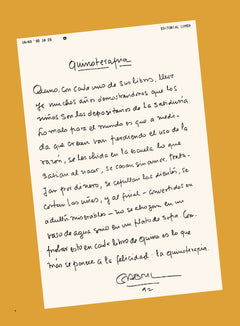 EDITORIAL LUMEN
Quinoterapia
Quino, con cada uno de sus libros, lleva
ya muchos años demostrándonos que los
niños son los depositarios de la sabiduría.
Lo malo para el mundo es que a medi-
da que crecen van perdiendo el uso de la
razón, se les olvida en la escuela lo que
sabían al nacer, se casan sin amor, traba-
jan por dinero, se cepillan los dientes, se
cortan las uñas, y al final - convertidos en
adultos miserables - no se ahogan en un
vaso de agua sino en un plato de sopa. Com-
probar esto en cada libro de Quino es lo que
más se parece a la felicidad: la quinoterapia.
GABRIEL
92